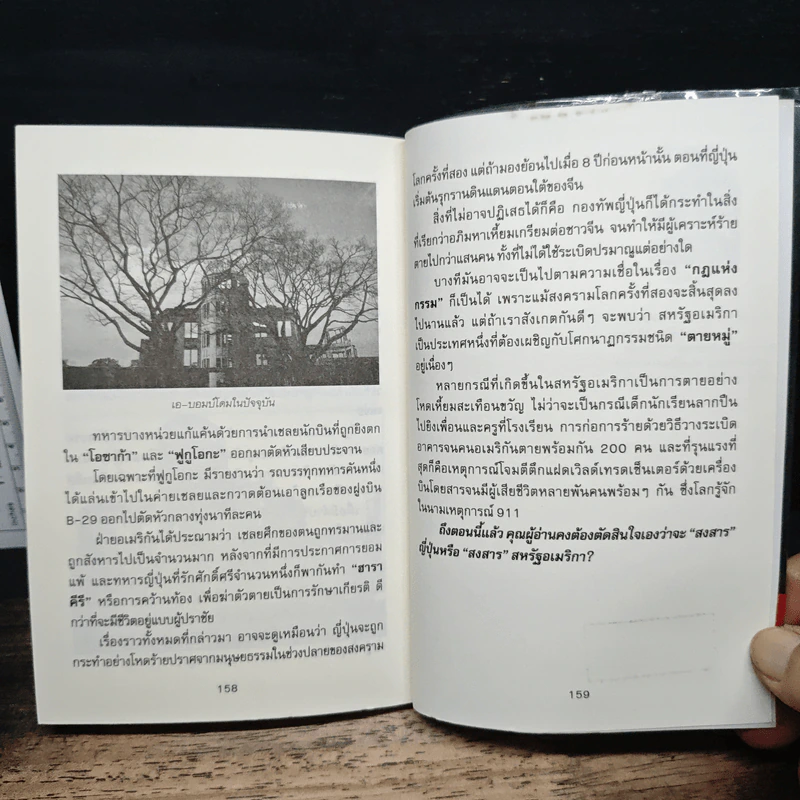 เอ-บอมบ์โดมในปัจจุบัน
ทหารบางหน่วยแก้แค้นด้วยการนำเชลยนักบินที่ถูกยิงตก
ใน “โอซาก้า” และ “ฟูกูโอกะ” ออกมาตัดหัวเสียบประจาน
โดยเฉพาะที่ฟูกูโอกะ มีรายงานว่า รถบรรทุกทหารคันหนึ่ง
ได้แล่นเข้าไปในค่ายเชลยและกวาดต้อนเอาลูกเรือของฝูงบิน
B-29 ออกไปตัดหัวกลางทุ่งนาทีละคน
ฝ่ายอเมริกันได้ประณามว่า เชลยศึกของตนถูกทรมานและ
ถูกสังหารไปเป็นจำนวนมาก หลังจากที่มีการประกาศการยอม
แพ้ และทหารญี่ปุ่นที่รักศักดิ์ศรีจำนวนหนึ่งก็พากันทำ “ฮารา
คีรี” หรือการคว้านท้อง เพื่อฆ่าตัวตายเป็นการรักษาเกียรติ ดี
กว่าที่จะมีชีวิตอยู่แบบผู้ปราชัย
เรื่องราวทั้งหมดที่กล่าวมา อาจจะดูเหมือนว่า ญี่ปุ่นจะถูก
กระทำอย่างโหดร้ายปราศจากมนุษยธรรมในช่วงปลายของสงคราม
158
โลกครั้งที่สอง แต่ถ้ามองย้อนไปเมื่อ 8 ปีก่อนหน้านั้น ตอนที่ญี่ปุ่น
เริ่มต้นรุกรานดินแดนตอนใต้ของจีน
สิ่งที่ไม่อาจปฏิเสธได้ก็คือ กองทัพญี่ปุ่นก็ได้กระทำในสิ่ง
ที่เรียกว่าอภิมหาเหี้ยมเกรียมต่อชาวจีน จนทำให้มีผู้เคราะห์ร้าย
ตายไปกว่าแสนคน ทั้งที่ไม่ได้ใช้ระเบิดปรมาณูแต่อย่างใด
บางทีมันอาจจะเป็นไปตามความเชื่อในเรื่อง “กฎแห่ง
กรรม” ก็เป็นได้ เพราะแม้สงครามโลกครั้งที่สองจะสิ้นสุดลง
ไปนานแล้ว แต่ถ้าเราสังเกตกันดีๆ จะพบว่า สหรัฐอเมริกา
เป็นประเทศหนึ่งที่ต้องเผชิญกับโศกนาฏกรรมชนิด “ตายหมู่”
อยู่เนืองๆ
หลายกรณีที่เกิดขึ้นในสหรัฐอเมริกาเป็นการตายอย่าง
โหดเหี้ยมสะเทือนขวัญ ไม่ว่าจะเป็นกรณีเด็กนักเรียนลากปืน
ไปยิงเพื่อนและครูที่โรงเรียน การก่อการร้ายด้วยวิธีวางระเบิด
อาคารจนคนอเมริกันตายพร้อมกัน 200 คน และที่รุนแรงที่
สุดก็คือเหตุการณ์โจมตีตึกแฝดเวิลด์เทรดเซ็นเตอร์ด้วยเครื่อง
บินโดยสารจนมีผู้เสียชีวิตหลายพันคนพร้อมๆ กัน ซึ่งโลกรู้จัก
ในนามเหตุการณ์ 911
ถึงตอนนี้แล้ว คุณผู้อ่านคงต้องตัดสินใจเองว่าจะ “สงสาร”
ญี่ปุ่นหรือ “สงสาร” สหรัฐอเมริกา?
159